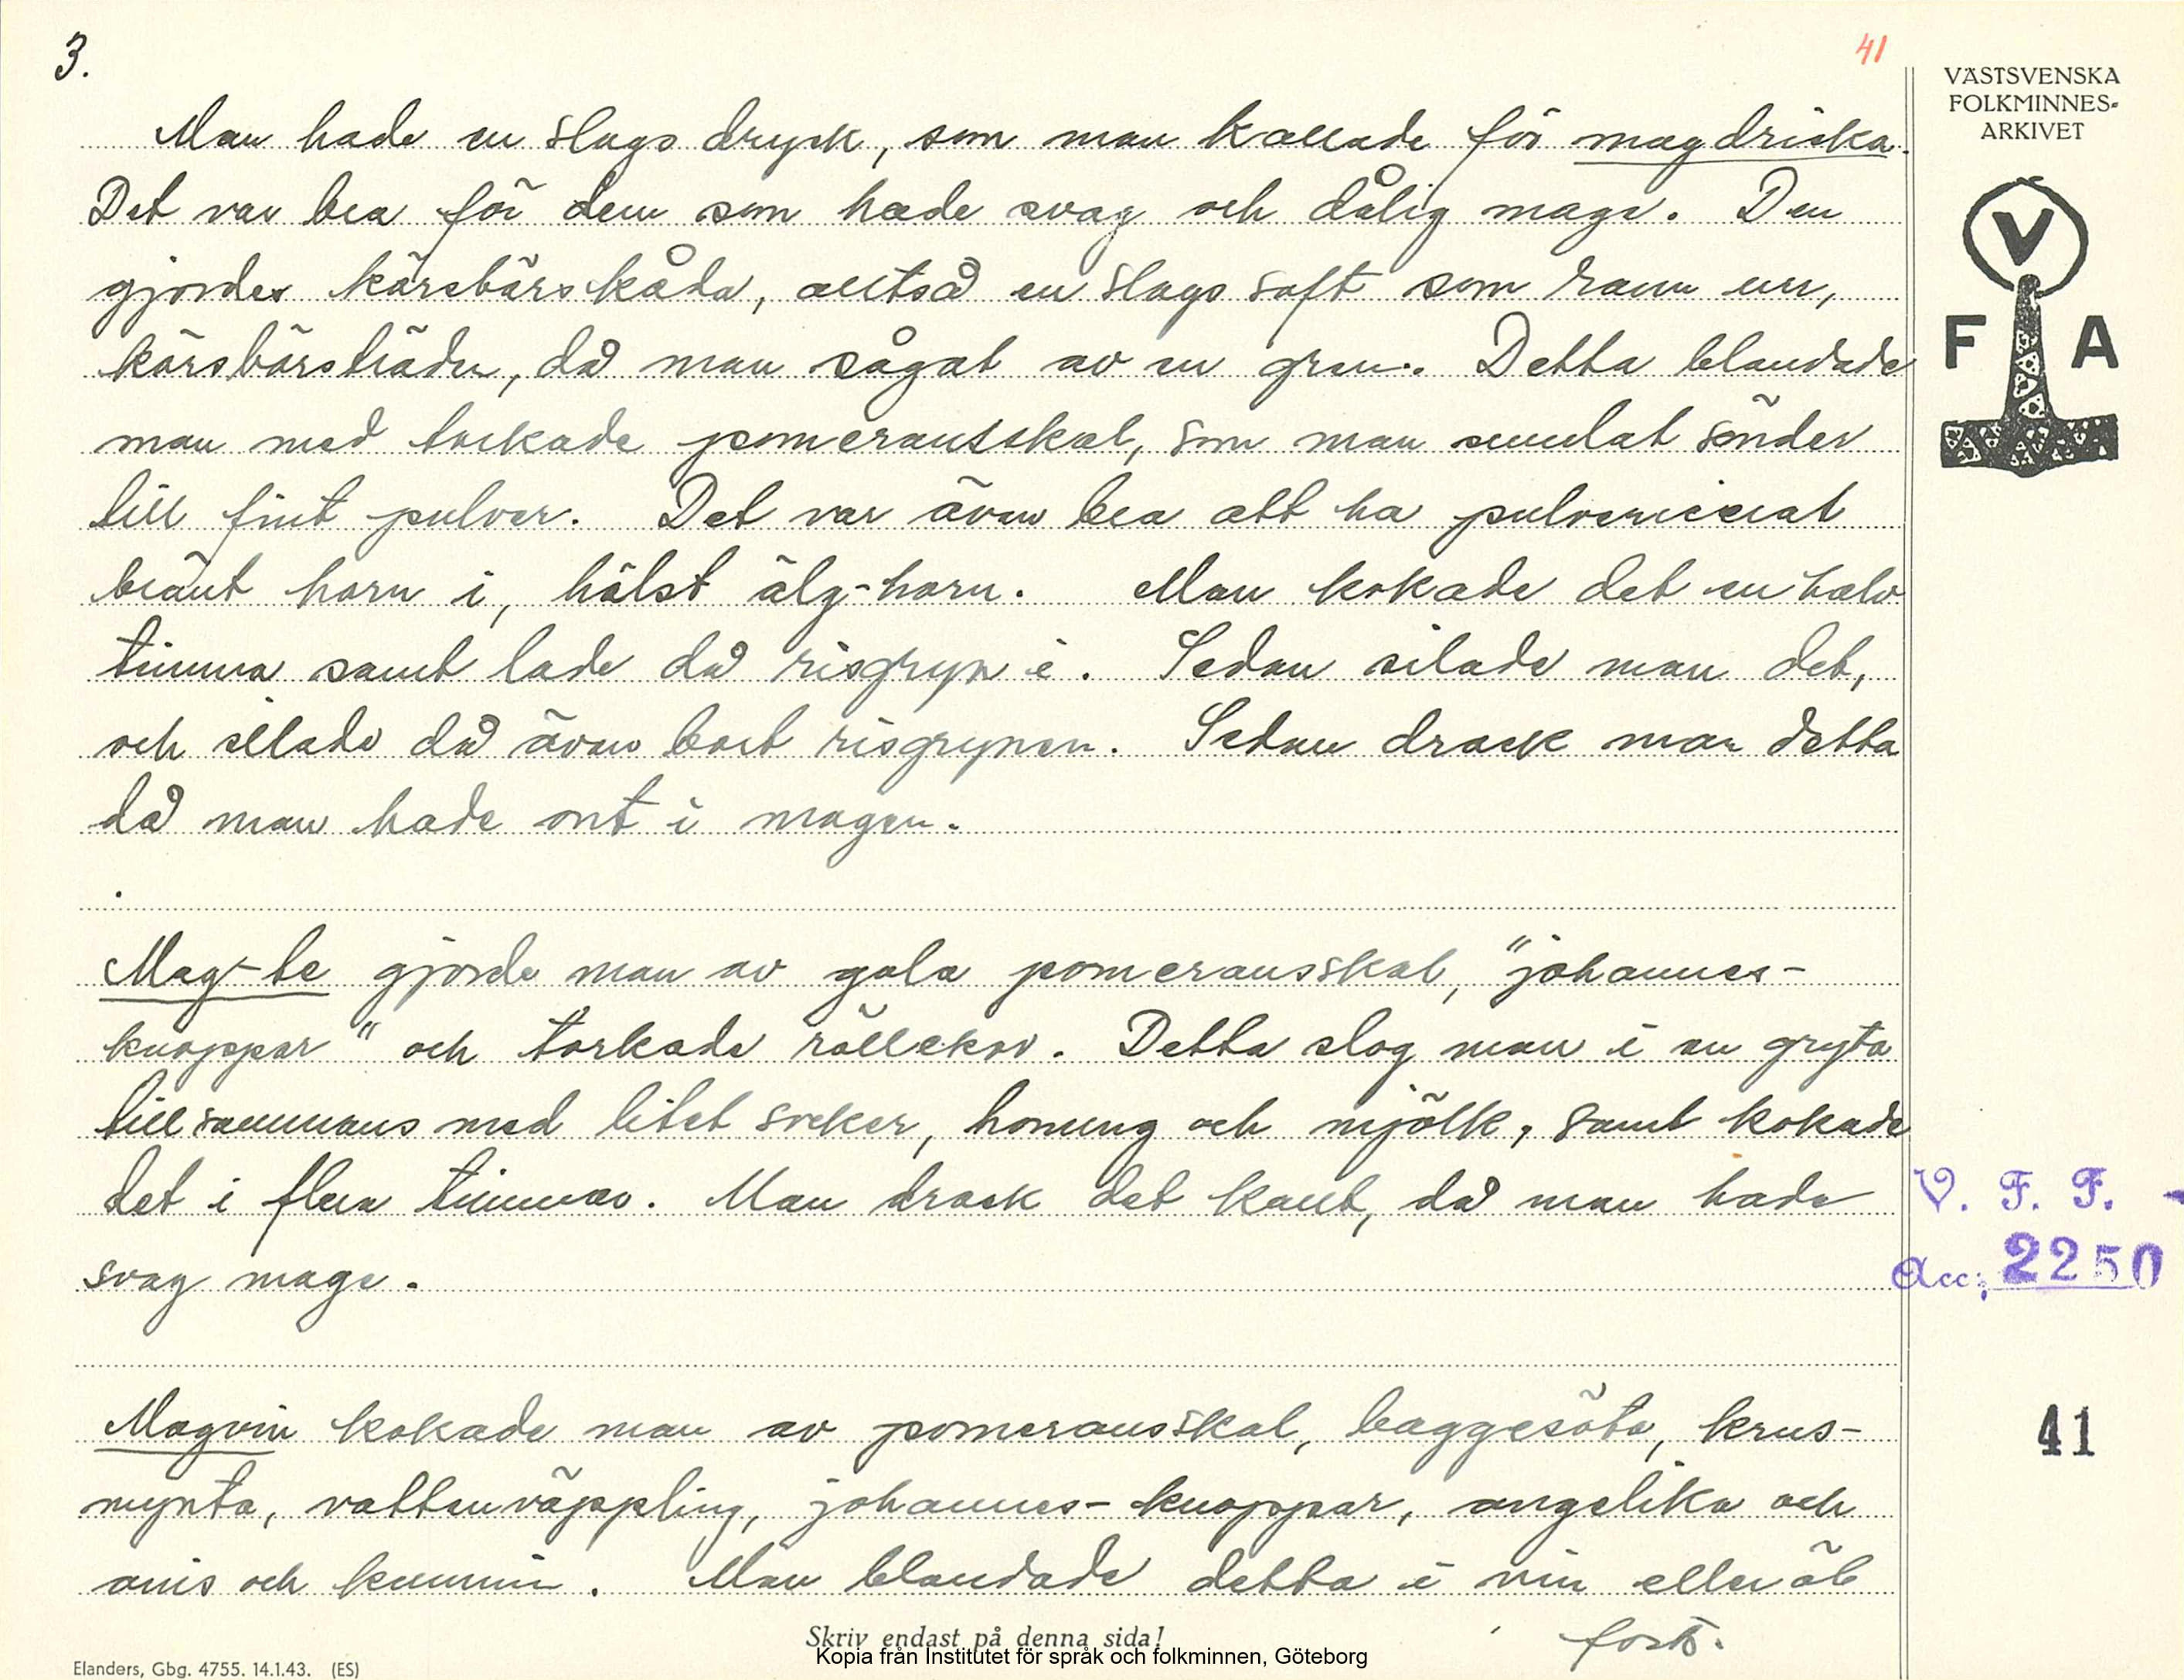 3.
41
VÄSTSVENSKA
FOLKMINNES-
ARKIVET
V
F A
Man hade en slags dryck, som man kallade för magdricka.
Det var bra för dem som hade svag och dålig mage. Den
gjordes kärsbärskåda, alltså en slags saft som rann urr,
kärsbärsträden, då man sågat av en gren. Detta blandade
man med torkade pomeransskal, som man smulat sönder
till fint pulver. Det var även bra att ha pulvericerat
bränt horn i, hälst älg-horn. Man kokade det en halv
timma samt lade då risgryn i. Sedan silade man det,
och silade då även bort risgrynen. Sedan drack man detta
då man hade ont i magen.
Mag-te gjorde man av gula pomeransskal, "johannes-
knoppar" och torkade röllekor. Detta slog man i en gryta
tillsammans med litet socker, honung och mjölk, samt kokade
det i flera timmar. Man drack det kallt, då man hade
svag mage.
V. F. F.
Acc: 2250
Magvin kokade man av pomeransskal, baggesöta, krus-
mynta, vattenväppling, johannes-knoppar, angelika och
anis och kummin. Man blandade detta i vin eller öl
41
forts.
Skriv endast på denna sida!
Kopia från Institutet för språk och folkminnen, Göteborg
Elanders, Gbg. 4755. 14.1.43. (ES)